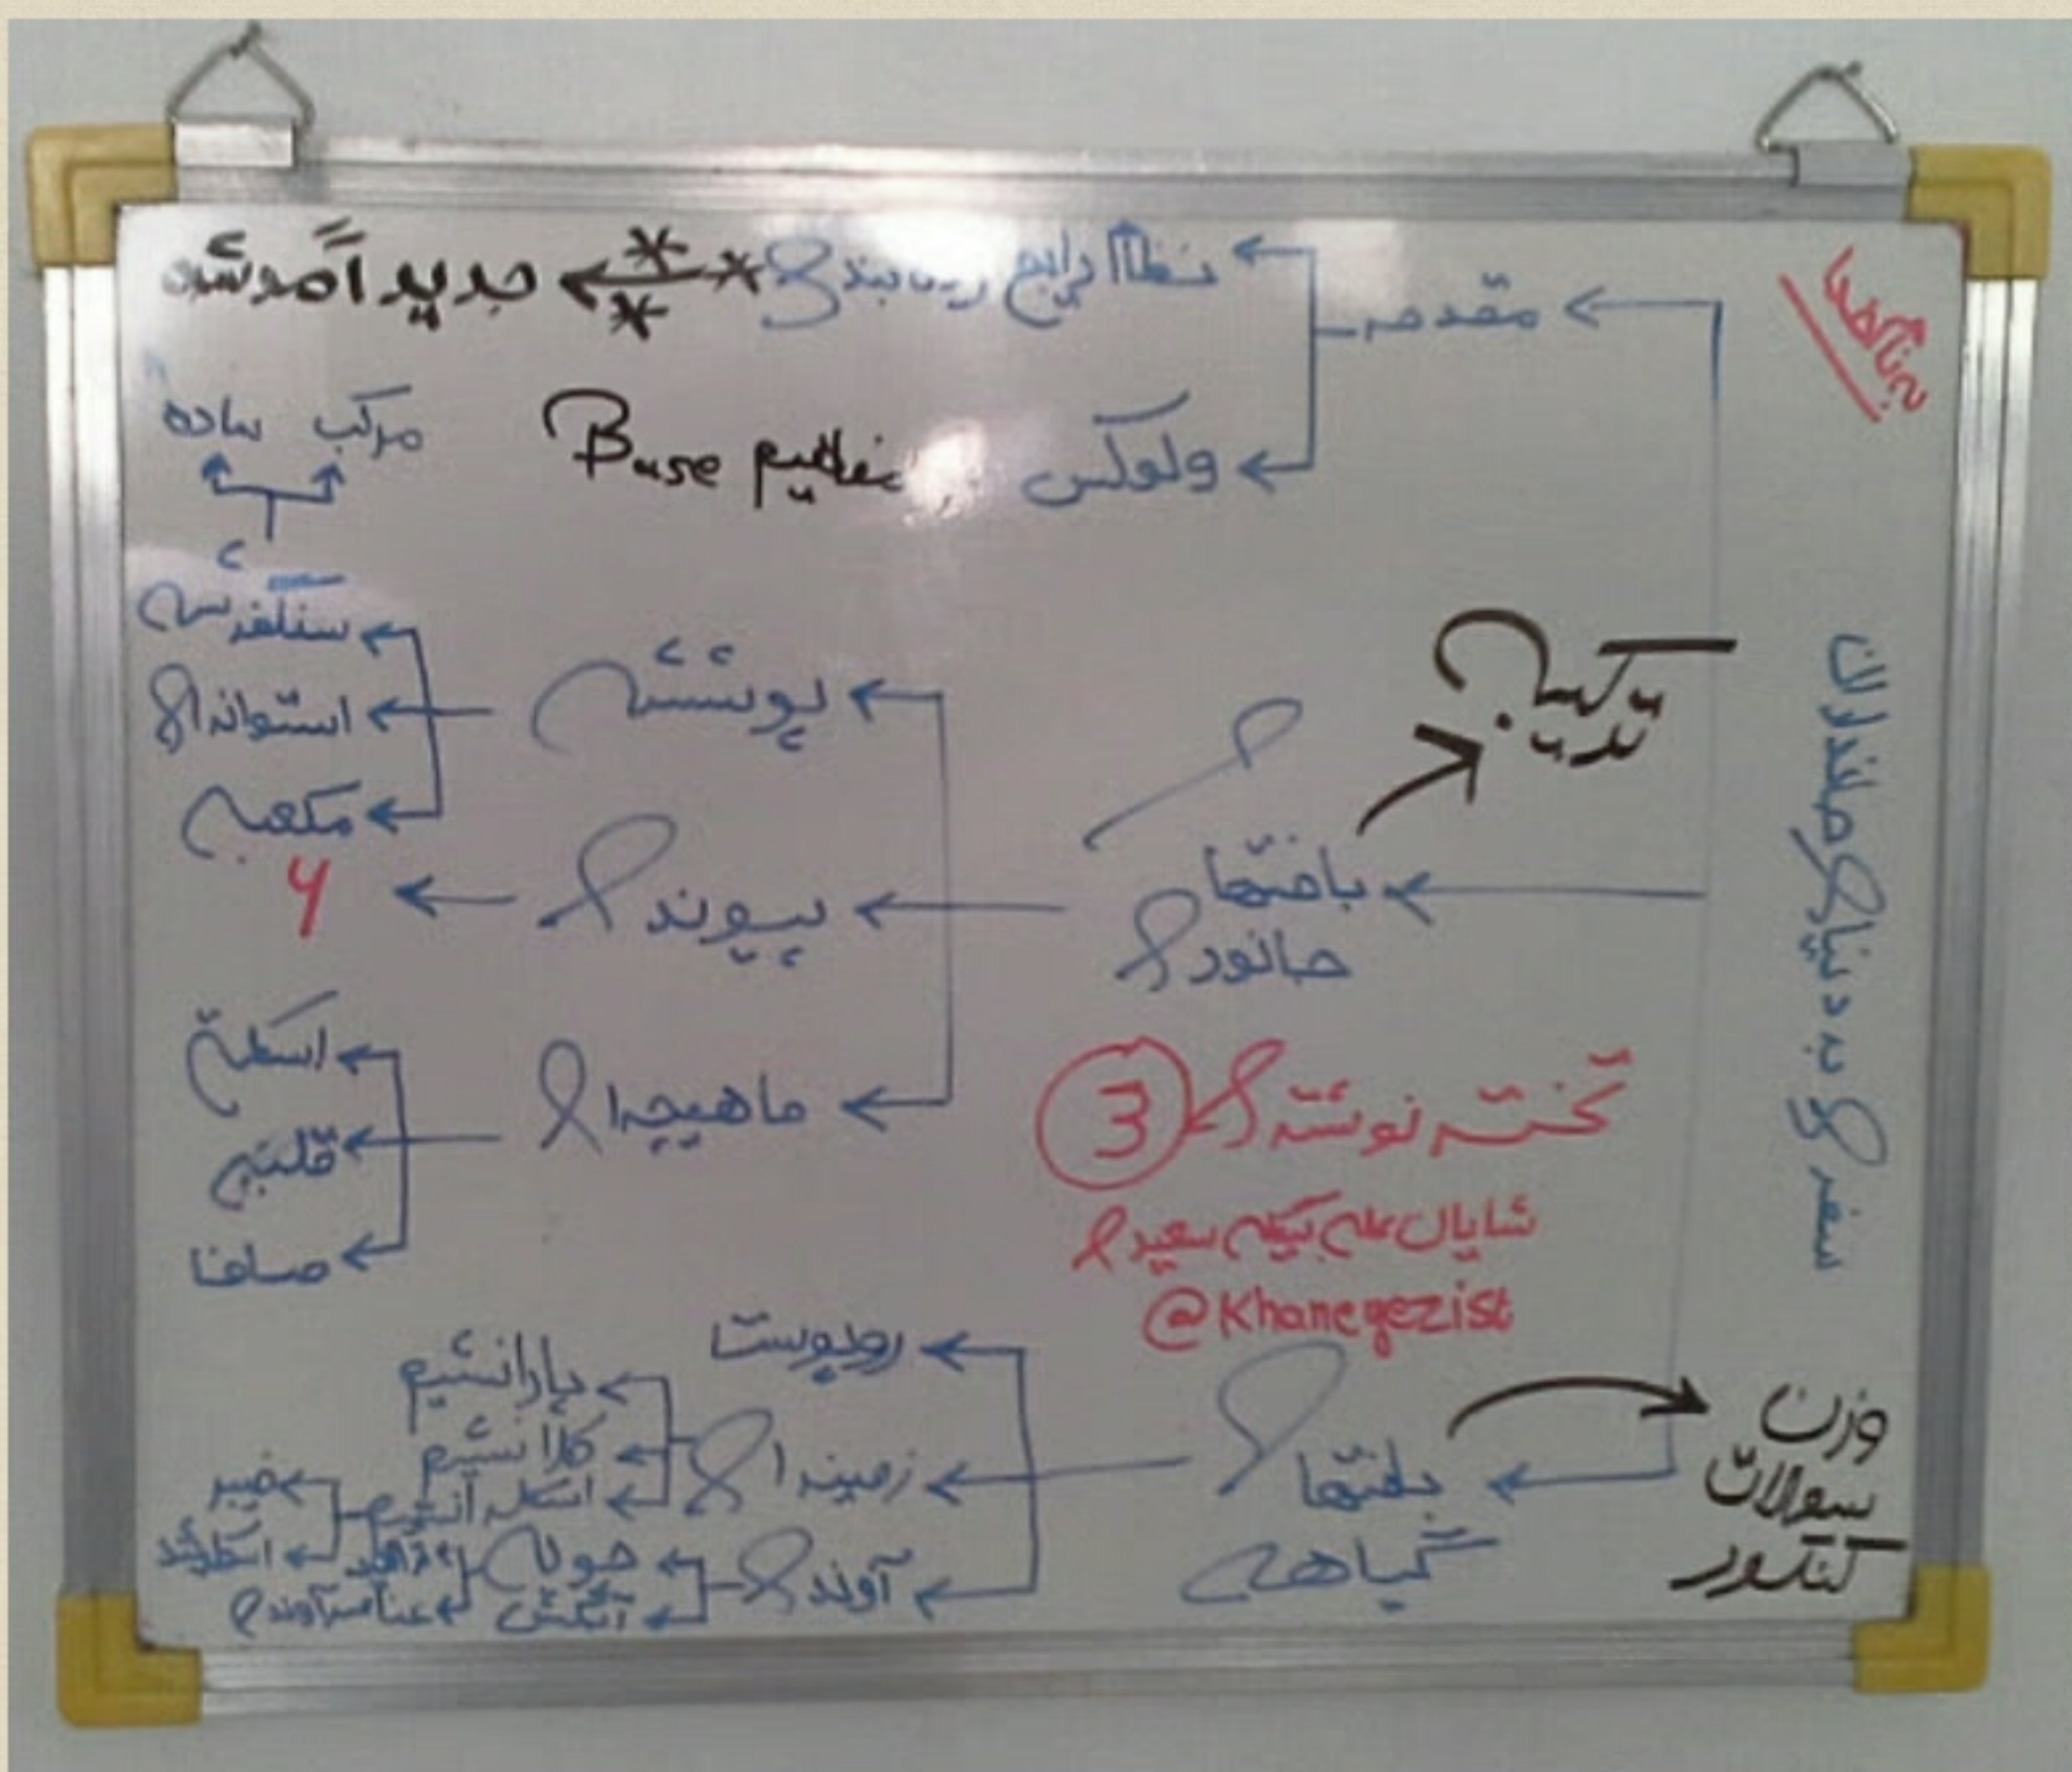 به نام خدا
سفری به دنیای جانداران
مقدمه
جدید آموزشی
ولوکس
مفاهیم Base
ترکیبی
بافتهای
جانوری
پوششی
سنگفرشی
مرکب ساده
استوانه‌ای
مکعبی
پیوندی
۶
ماهیچه‌ای
اسکلتی
قلبی
صاف
تخته نوشته ی 3
شایان علی بیگی سعیدی
@Khanegezist
وزن
سوالات
کنکور
بافتهای
گیاهی
روپوست
زمینه‌ای
پارانشیم
کلانشیم
اسکلرانشیم
فیبر
اسکلرئید
آوندی
چوبی
تراکئید
عناصر آوندی
آبکش